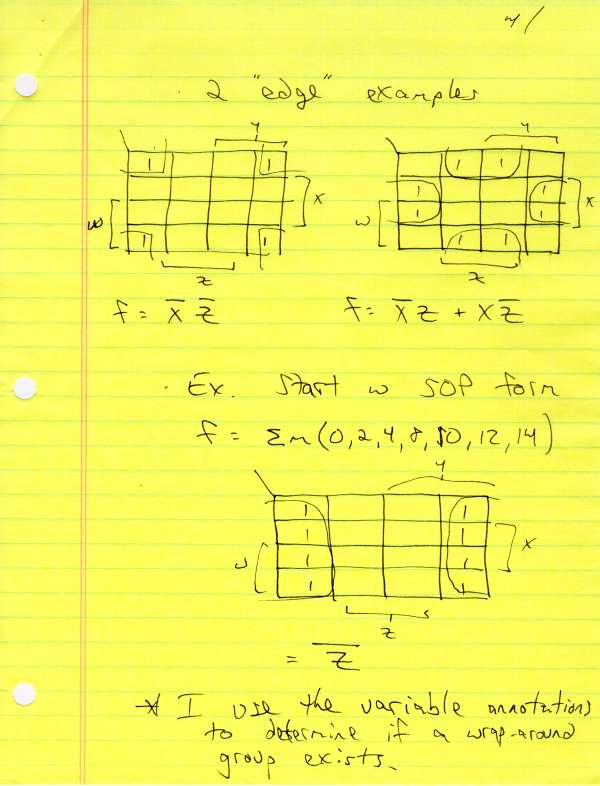 4/
2 "edge" examples
y y
1 1 1 1
x 1 1 x
w w 1 1
1 1 1 1
z z
f = X̅ Z̅ f = X̅ Z + X Z̅
· Ex. Start w SOP form
f = Σm(0,2,4,8,10,12,14)
y
1 1
1 1 x
w 1 1
1 1
z
= Z̅
* I use the variable annotations
to determine if a wrap-around
group exists.